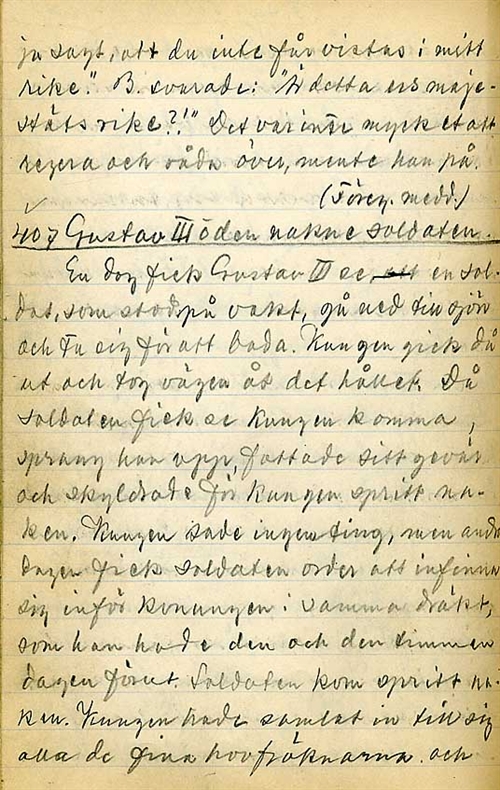 ju sagt, att du inte får vistas i mitt
rike." B. svarade: "Är detta ers maje-
stäts rike?!" Det var inte mycket att
regera och råda över, mente han på.
(Föreg. medd.)
407 Gustav III o den nakne soldaten.
En dag fick Gustav III se, en sol-
dat, som stod på vakt, gå ned till sjön
och ta sig för att bada. Kungen gick då
ut och tog vägen åt det hållet. Då
soldaten fick se kungen komma,
sprang han upp, fattade sitt gevär
och skyldrade för kungen spritt na-
ken. Kungen sade ingenting, men andra
dagen fick soldaten order att infinna
sig inför konungen i samma dräkt,
som han hade den och den timmen
dagen förut. Soldaten kom spritt na-
ken. Kungen hade samlat in till sig
alla de fina hovfröknarna och